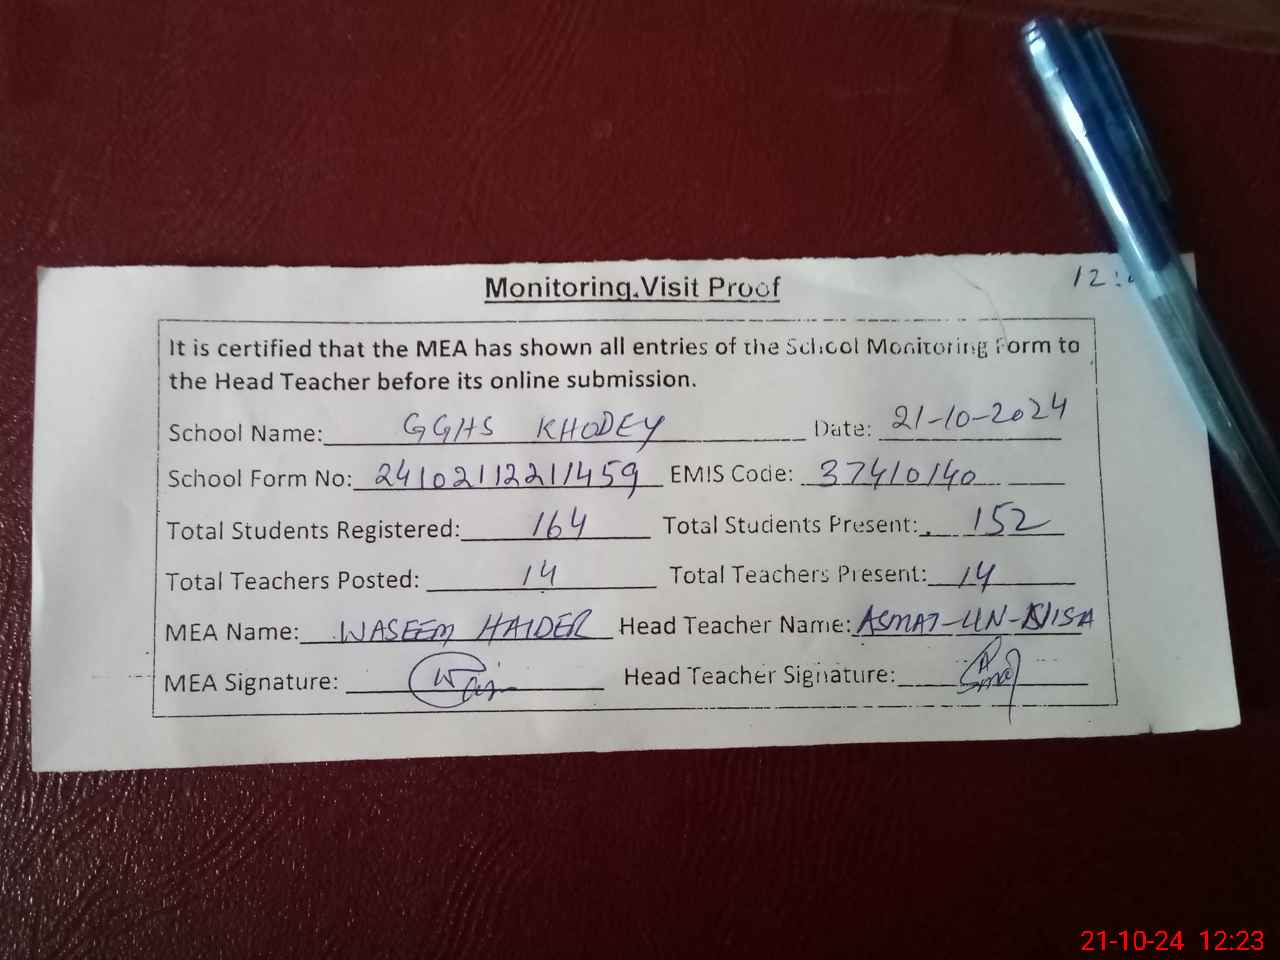 Monitoring Visit Proof
12:
It is certified that the MEA has shown all entries of the School Monitoring Form to
the Head Teacher before its online submission.
School Name: GGHS KHODEY Date: 21-10-2024
School Form No: 24102112211459 EMIS Code: 37410140
Total Students Registered: 164 Total Students Present: 152
Total Teachers Posted: 14 Total Teachers Present: 14
MEA Name: WASEEM HAIDER Head Teacher Name: ASMAT-UN-NISA
MEA Signature: Head Teacher Signature:
21-10-24 12:23